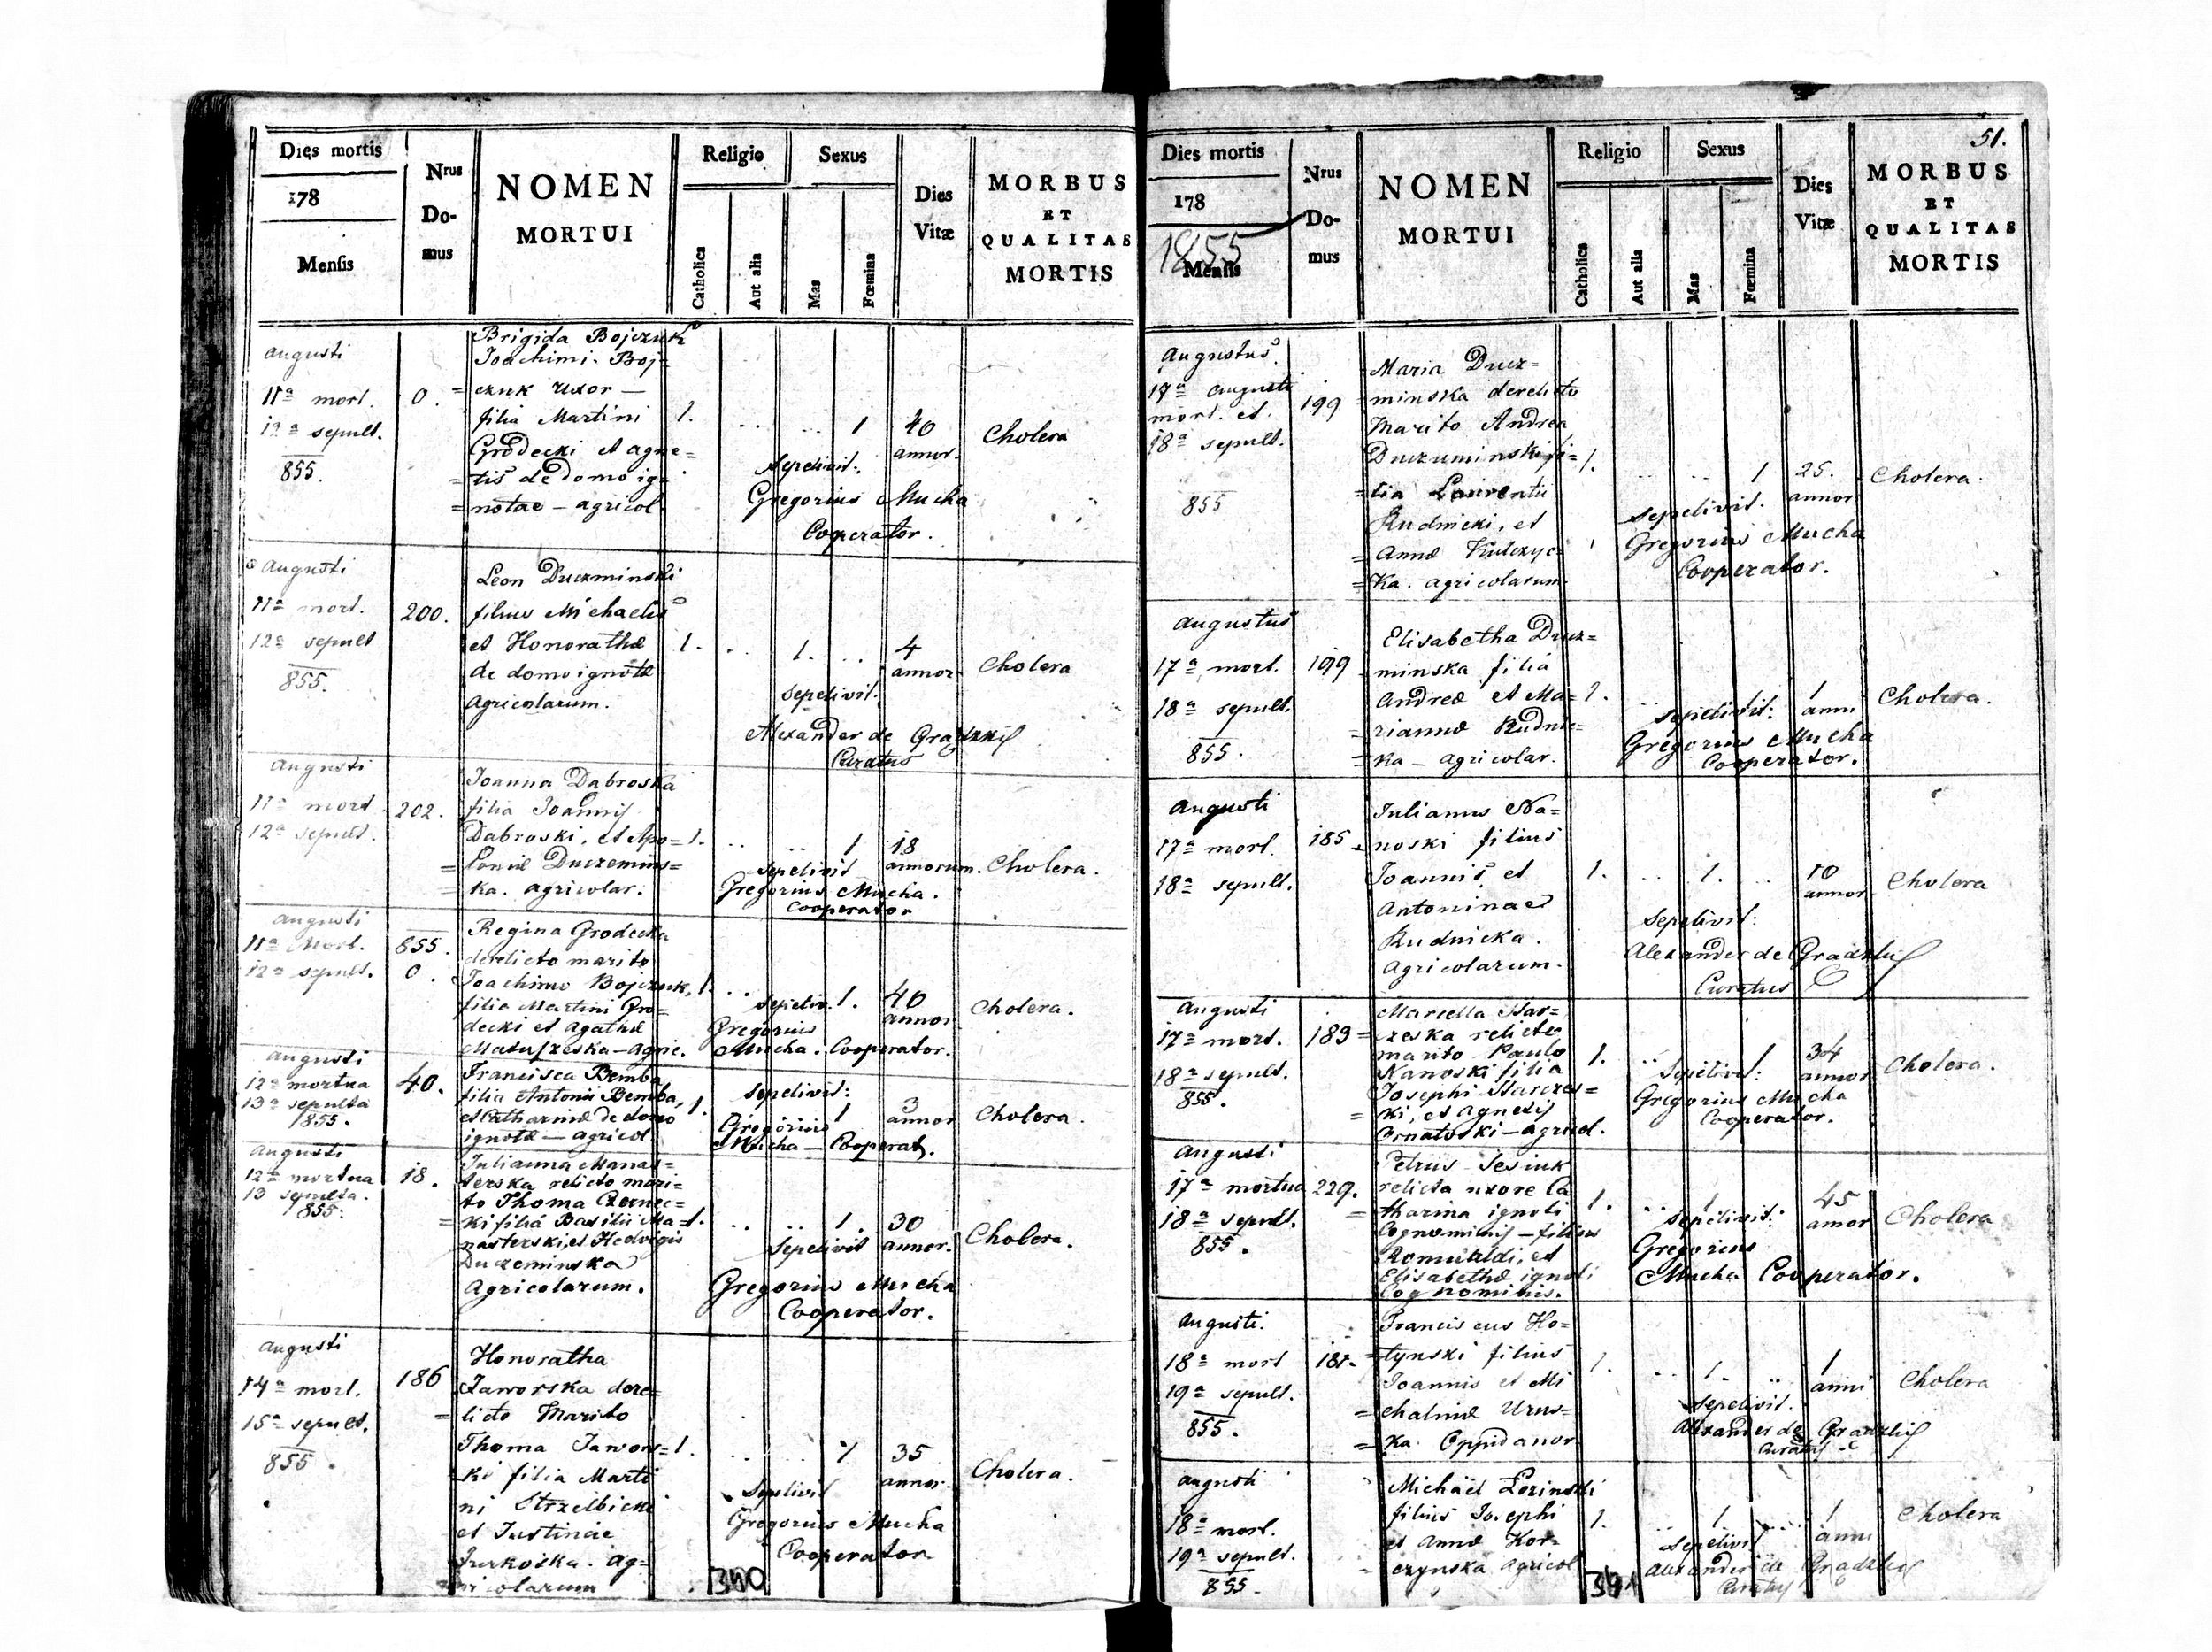 Dies mortis
178
Mensis
Nrus
Do-
mus
NOMEN
MORTUI
Religio
Catholica
Aut alia
Sexus
Mas
Fœmina
Dies
Vitæ
MORBUS
ET
QUALITAS
MORTIS
augusti
11a mort.
12a sepult.
855.
0.
Brigida Bojczuk
Joachimi Boj-
= czuk uxor —
filia Martini
Grodecki et agne=
= tis de domo ig-
= notae – agricol.
1. .. .. 1
40
annor.
Cholera
Sepelivit:
Gregorius Mucha
Cooperator.
augusti
11a mort.
12a sepult
855.
200.
Leon Duczminski
filius Michaelis
et Honorathæ
de domo ignotæ
agricolarum.
1. .. 1. ..
4
annor
Cholera
Sepelivit.
Alexander de Gradzkij
Curatus
augusti
11a mort
12a sepult.
202.
Joanna Dabroska
filia Joannis
Dabroski, et Apo=
= loniæ Duczemins=
= ka. agricolar.
1. .. .. 1
18
annorum.
Cholera.
sepelivit
Gregorius Mucha.
Cooperator
augusti
11a Mort.
12a sepult.
855.
0.
Regina Grodecka
derelicto marito
Joachimo Bojczuk,
filia Martini Gro=
decki et Agathæ
Matuszeska – Agric.
1. .. 1.
40
annor
Cholera.
sepeliv.
Gregorius
Mucha. Cooperator.
augusti
12a mortua
13a sepulta
1855.
40.
Francisca Bemba
filia Antonii Bemba,
et Catharinæ de domo
ignotæ – agricol
1. 1
3
annor
Cholera.
sepelivit:
Gregorius
Mucha – Cooperat.
augusti
12a mortua
13 sepulta.
1855.
18.
Julianna Manas=
terska relicto mari=
to Thoma Czernec=
= ki filia Basilii Ma=
nasterski, et Hedvigis
Duczeminska
Agricolarum.
1. .. .. 1.
30
annor.
Cholera.
Sepelivit
Gregorius Mucha
Cooperator.
augusti
14a mort.
15a sepult.
855.
186
Honoratha
Jaworska dere=
= licto Marito
Thoma Jawors=
ki filia Marti
ni Strzelbicki
et Justinae
Jurkoska. ag=
= ricolarum
1. .. .. 1
35
annor.
Cholera.
Sepelivit
Gregorius Mucha
Cooperator
340
51.
Dies mortis
178
1855
Mensis
Nrus
Do-
mus
NOMEN
MORTUI
Religio
Catholica
Aut alia
Sexus
Mas
Fœmina
Dies
Vitæ
MORBUS
ET
QUALITAS
MORTIS
Augustus
17a augusti
mort. et.
18a sepult.
855
199
Maria Ducz=
= minska derelicto
Marito Andrea
Duczuminski fi=
= lia Laurentii
Rudnicki, et
= Annæ Kulczyc=
= ka. agricolarum
1. .. .. 1
25.
annor
Cholera.
sepelivit.
Gregorius Mucha
Cooperator.
augustus
17a mort.
18a sepult.
855.
199
Elisabetha Ducz=
minska filia
Andreæ et Ma=
= riannæ Rudnic=
= ka – agricolar.
1.
1
anni
Cholera.
sepelivit:
Gregorius Mucha
Cooperator.
Augusti
17a mort.
18a sepult.
185.
Julianus Na=
noski filius
Joannis, et
Antoninae
Rudnicka.
Agricolarum.
1. .. 1. ..
10
annor
Cholera
Sepelivit:
Alexander de Gradzkij
Curatus
augusti
17a mort.
18a sepult.
855.
183 =
Marcella Har=
czeska relicto
marito Paulo
Nanoski filia
Josephi Harczes=
= ki, et Agnetis
Ornatoski – agricol.
1. .. 1
34
annor
Cholera.
Sepelivit:
Gregorius Mucha
Cooperator.
Augusti
17a mortua
18a sepult.
855.
229.
Petrus Sesiuk
relicta uxore Ca
= tharina ignoti
Cognominis – filius
Romualdi, et
Elisabethæ ignoti
Cognominis.
1. .. 1
45
annor
Cholera
sepelivit:
Gregorius
Mucha Cooperator.
Augusti.
18a mort
19a sepult.
855.
181.
Franciscus Ho=
= tynski filius
Joannis et Mi
= chalinæ Urus=
= ka. Oppidanor
1. .. 1. ..
1
anni
Cholera
Sepelivit.
Alexander de Gradzkij
Curatus
augusti
18a mort.
19a sepult.
855.
Michael Lozinski
filius Josephi
et Annæ Kor=
czynska agricol
1. .. 1 ..
1
anni
Cholera
Sepelivit
Alexander de Gradzkij
Curatus
341